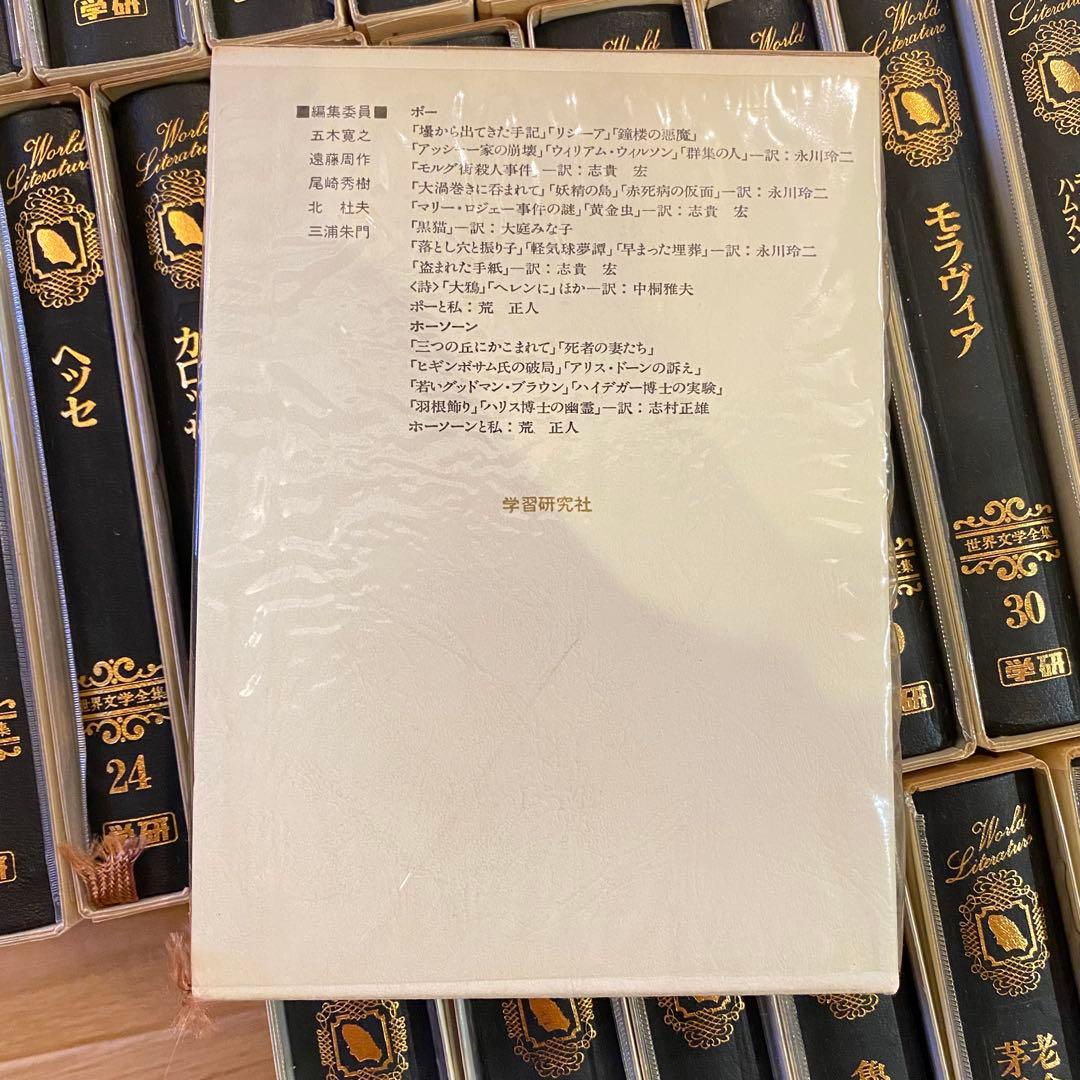 ■編集委員■
五木寛之
遠藤周作
尾崎秀樹
北 杜夫
三浦朱門
ポー
「壜から出てきた手記」「リジーア」「鐘楼の悪魔」
「アッシャー家の崩壊」「ウィリアム・ウィルソン」「群集の人」―訳：永川玲二
「モルグ街殺人事件」―訳：志貴 宏
「大渦巻きに呑まれて」「妖精の島」「赤死病の仮面」―訳：永川玲二
「マリー・ロジェー事件の謎」「黄金虫」―訳：志貴 宏
「黒猫」―訳：大庭みな子
「落とし穴と振り子」「軽気球夢譚」「早まった埋葬」―訳：永川玲二
「盗まれた手紙」―訳：志貴 宏
〈詩〉「大鴉」「ヘレンに」ほか―訳：中桐雅夫
ポーと私：荒 正人
ホーソーン
「三つの丘にかこまれて」「死者の妻たち」
「ヒギンボサム氏の破局」「アリス・ドーンの訴え」
「若いグッドマン・ブラウン」「ハイデガー博士の実験」
「羽根飾り」「ハリス博士の幽霊」―訳：志村正雄
ホーソーンと私：荒 正人
学習研究社
学研
World Literature
ヘッセ
世界文学全集
24
学研
World Literature
カロッサ
World
World
World Literature
モラヴィア
世界文学全集
30
学研
Literature
ハムスン
集
World Literature
老
茅
魯